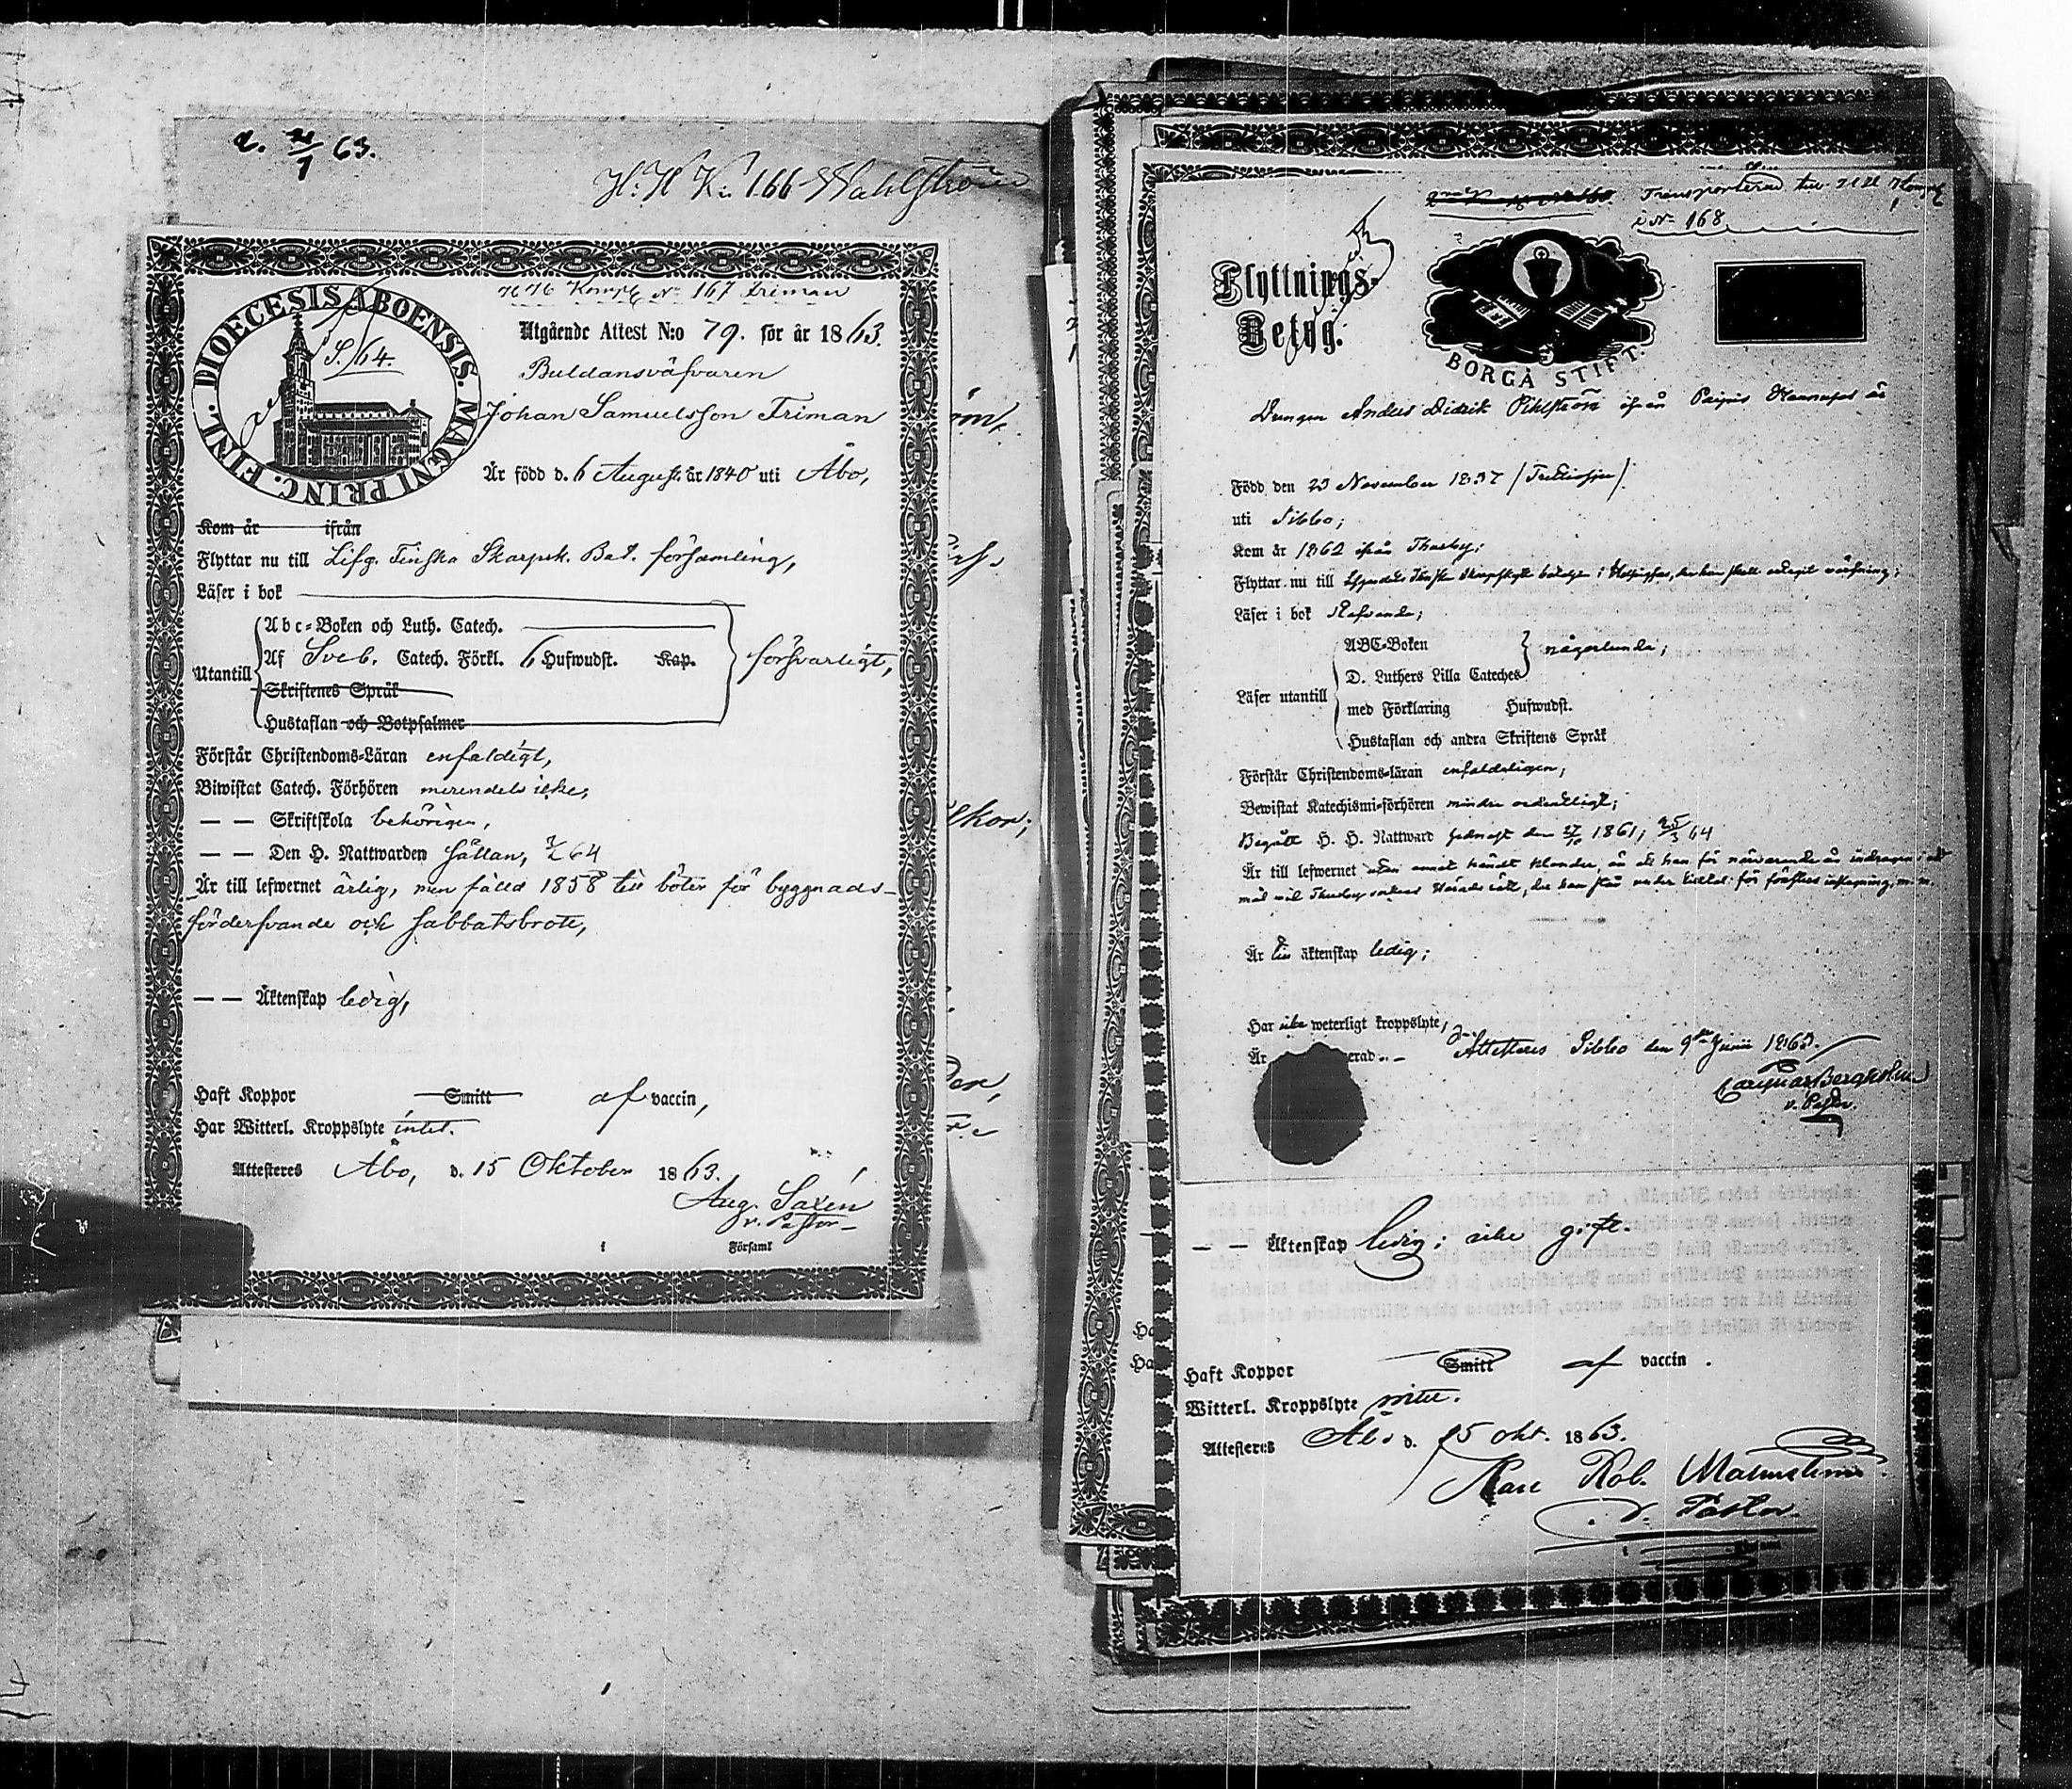 d. 21/1 63.
H: H K: 166 Wahlström
DIOECESIS ABOENSIS. MAGNI PRINC. FINL.
S./64.
H H Komp N:o 167 Friman
Utgående Attest N:o 79. för år 1863.
Buldansväfvaren
Johan Samuelsson Friman
Är född d. 6 August. år 1840 uti Åbo,
Kom år ifrån
Flyttar nu till Lifg. Finska Skarpsk. Bat. församling,
Läser i bok
Utantill
Abc-Boken och Luth. Catech.
Af Sveb. Catech. Förkl. 6 Hufwudst. Kap.
försvarligt,
Skriftenes Språk
Hustaflan och Botpsalmer
Förstår Christendoms-Läran enfaldigt,
Biwistat Catech. Förhören merendels icke,
— — Skriftskola behörigen,
— — Den H. Nattwarden sällan, 64
Är till lefwernet ärlig, men fälld 1858 till böter för byggnads-
förderfvande och sabbatsbrott,
— — Äktenskap ledig,
Haft Koppor Smitt af vaccin,
Har Witterl. Kroppslyte intet.
Attesteres Åbo, d. 15 Oktober 1863.
Aug. Saxén
v. Pastor
Församl
Transporterad till
i N:o 168
Flyttnings-
Betyg.
BORGÅ STIFT.
Drengen Anders Didrik Pihlström ifrån
Född den 23 November 1837
uti Sibbo;
Kom år 1862 ifrån Thusby;
Flyttar nu till Lifgardets Finska Skarpskytte bataljon i Helsingfors,
Läser i bok
Läser utantill
ABC-Boken
D. Luthers Lilla Cateches
någorlunda;
med Förklaring Hufwudst.
Hustaflan och andra Skriftens Språk
Förstår Christendoms-läran enfaldeligen;
Bewistat Katechismi-förhören mindre ordentligt;
Begått H. H. Nattward sednast den 27/10 1861; 64
Är till lefwernet
Är till äktenskap ledig;
Har icke weterligt kroppslyte;
Är erad
Attesteres Sibbo den 9de Junii 1863.
Bergholm
v. Pastor.
— — Äktenskap ledig; icke gift.
Haft Koppor Smitt af vaccin.
Witterl. Kroppslyte intet.
Attesteres Åbo d. 15 Okt. 1863.
Karl Rob. Malmström
v. Pastor